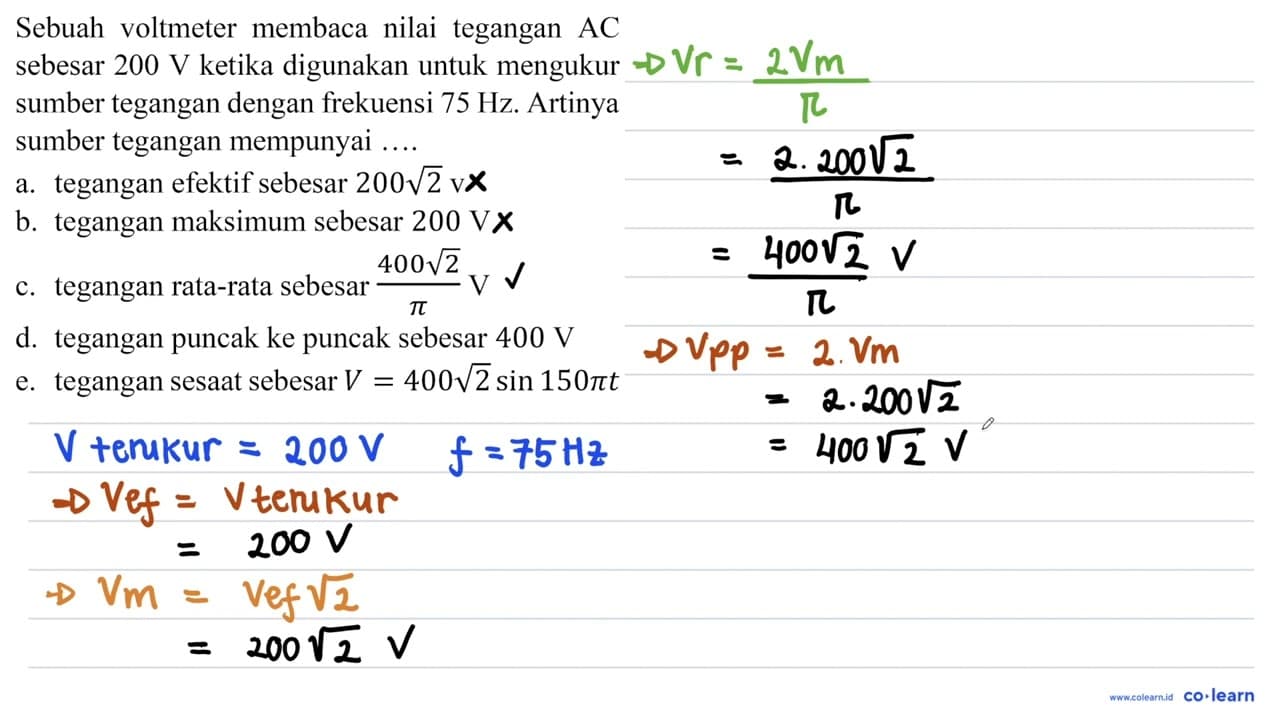 Sebuah voltmeter membaca nilai tegangan AC
sebesar 200 V ketika digunakan untuk mengukur
sumber tegangan dengan frekuensi 75 Hz. Artinya
sumber tegangan mempunyai ....
a. tegangan efektif sebesar 200√2 v ✗
b. tegangan maksimum sebesar 200 V ✗
c. tegangan rata-rata sebesar 400√2/π V ✓
d. tegangan puncak ke puncak sebesar 400 V
e. tegangan sesaat sebesar V = 400√2 sin 150πt
V terukur = 200 V f = 75 Hz
→ Vef = V terukur
= 200 V
→ Vm = Vef √2
= 200√2 V
→ Vr = 2Vm/π
= 2.200√2/π
= 400√2/π V
→ Vpp = 2.Vm
= 2.200√2
= 400√2 V
www.colearn.id co·learn